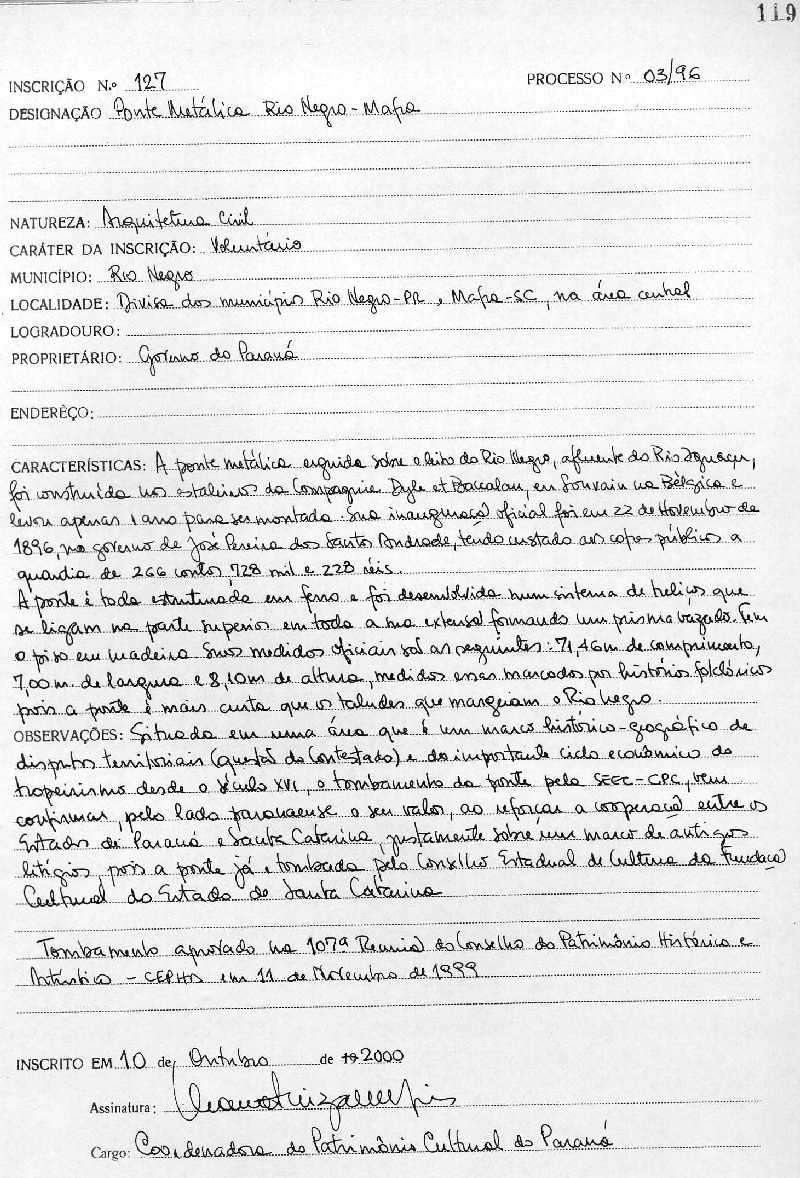 119
INSCRIÇÃO N.º 127 PROCESSO Nº 03/96
DESIGNAÇÃO Ponte Metálica Rio Negro - Mafra
NATUREZA: Arquitetura Civil
CARÁTER DA INSCRIÇÃO: Voluntário
MUNICÍPIO: Rio Negro
LOCALIDADE: Divisa dos municípios Rio Negro-PR e Mafra-SC, na área central
LOGRADOURO:
PROPRIETÁRIO: Governo do Paraná
ENDERÊÇO:
CARACTERÍSTICAS: A ponte metálica erguida sobre o leito do Rio Negro, afluente do Rio Iguaçu,
foi construída nos estaleiros da Compagnie Dyle et Baccalan, em Louvain na Bélgica e
levou apenas 1 ano para ser montada. Sua inauguração oficial foi em 22 de Novembro de
1896, no governo de José Pereira dos Santos Andrade, tendo custado aos cofres públicos a
quantia de 266 contos, 728 mil e 228 réis.
A ponte é toda estruturada em ferro e foi desenvolvida num sistema de treliças que
se ligam na parte superior em toda a sua extensão formando um prisma vazado. Tem
o piso em madeira. Suas medidas oficiais são as seguintes: 71,46m de comprimento,
7,00m. de largura e 8,10m de altura, medidas essas marcadas por histórias folclóricas
pois a ponte é mais curta que os taludes que margeiam o Rio Negro.
OBSERVAÇÕES: Situada em uma área que é um marco histórico-geográfico de
disputas territoriais (questão do Contestado) e do importante ciclo econômico do
tropeirismo desde o século XVI, o tombamento da ponte pela SEEC-CPC, vem
confirmar, pelo lado paranaense o seu valor, ao reforçar a cooperação entre os
Estados do Paraná e Santa Catarina, justamente sobre um marco de antigos
litígios pois a ponte já é tombada pelo Conselho Estadual de Cultura da Fundação
Cultural do Estado de Santa Catarina
Tombamento aprovado na 107ª Reunião do Conselho do Patrimônio Histórico e
Artístico - CEPHA em 11 de Novembro de 1999
INSCRITO EM 10 de Outubro de 19 2000
Assinatura:
Cargo: Coordenadora do Patrimônio Cultural do Paraná